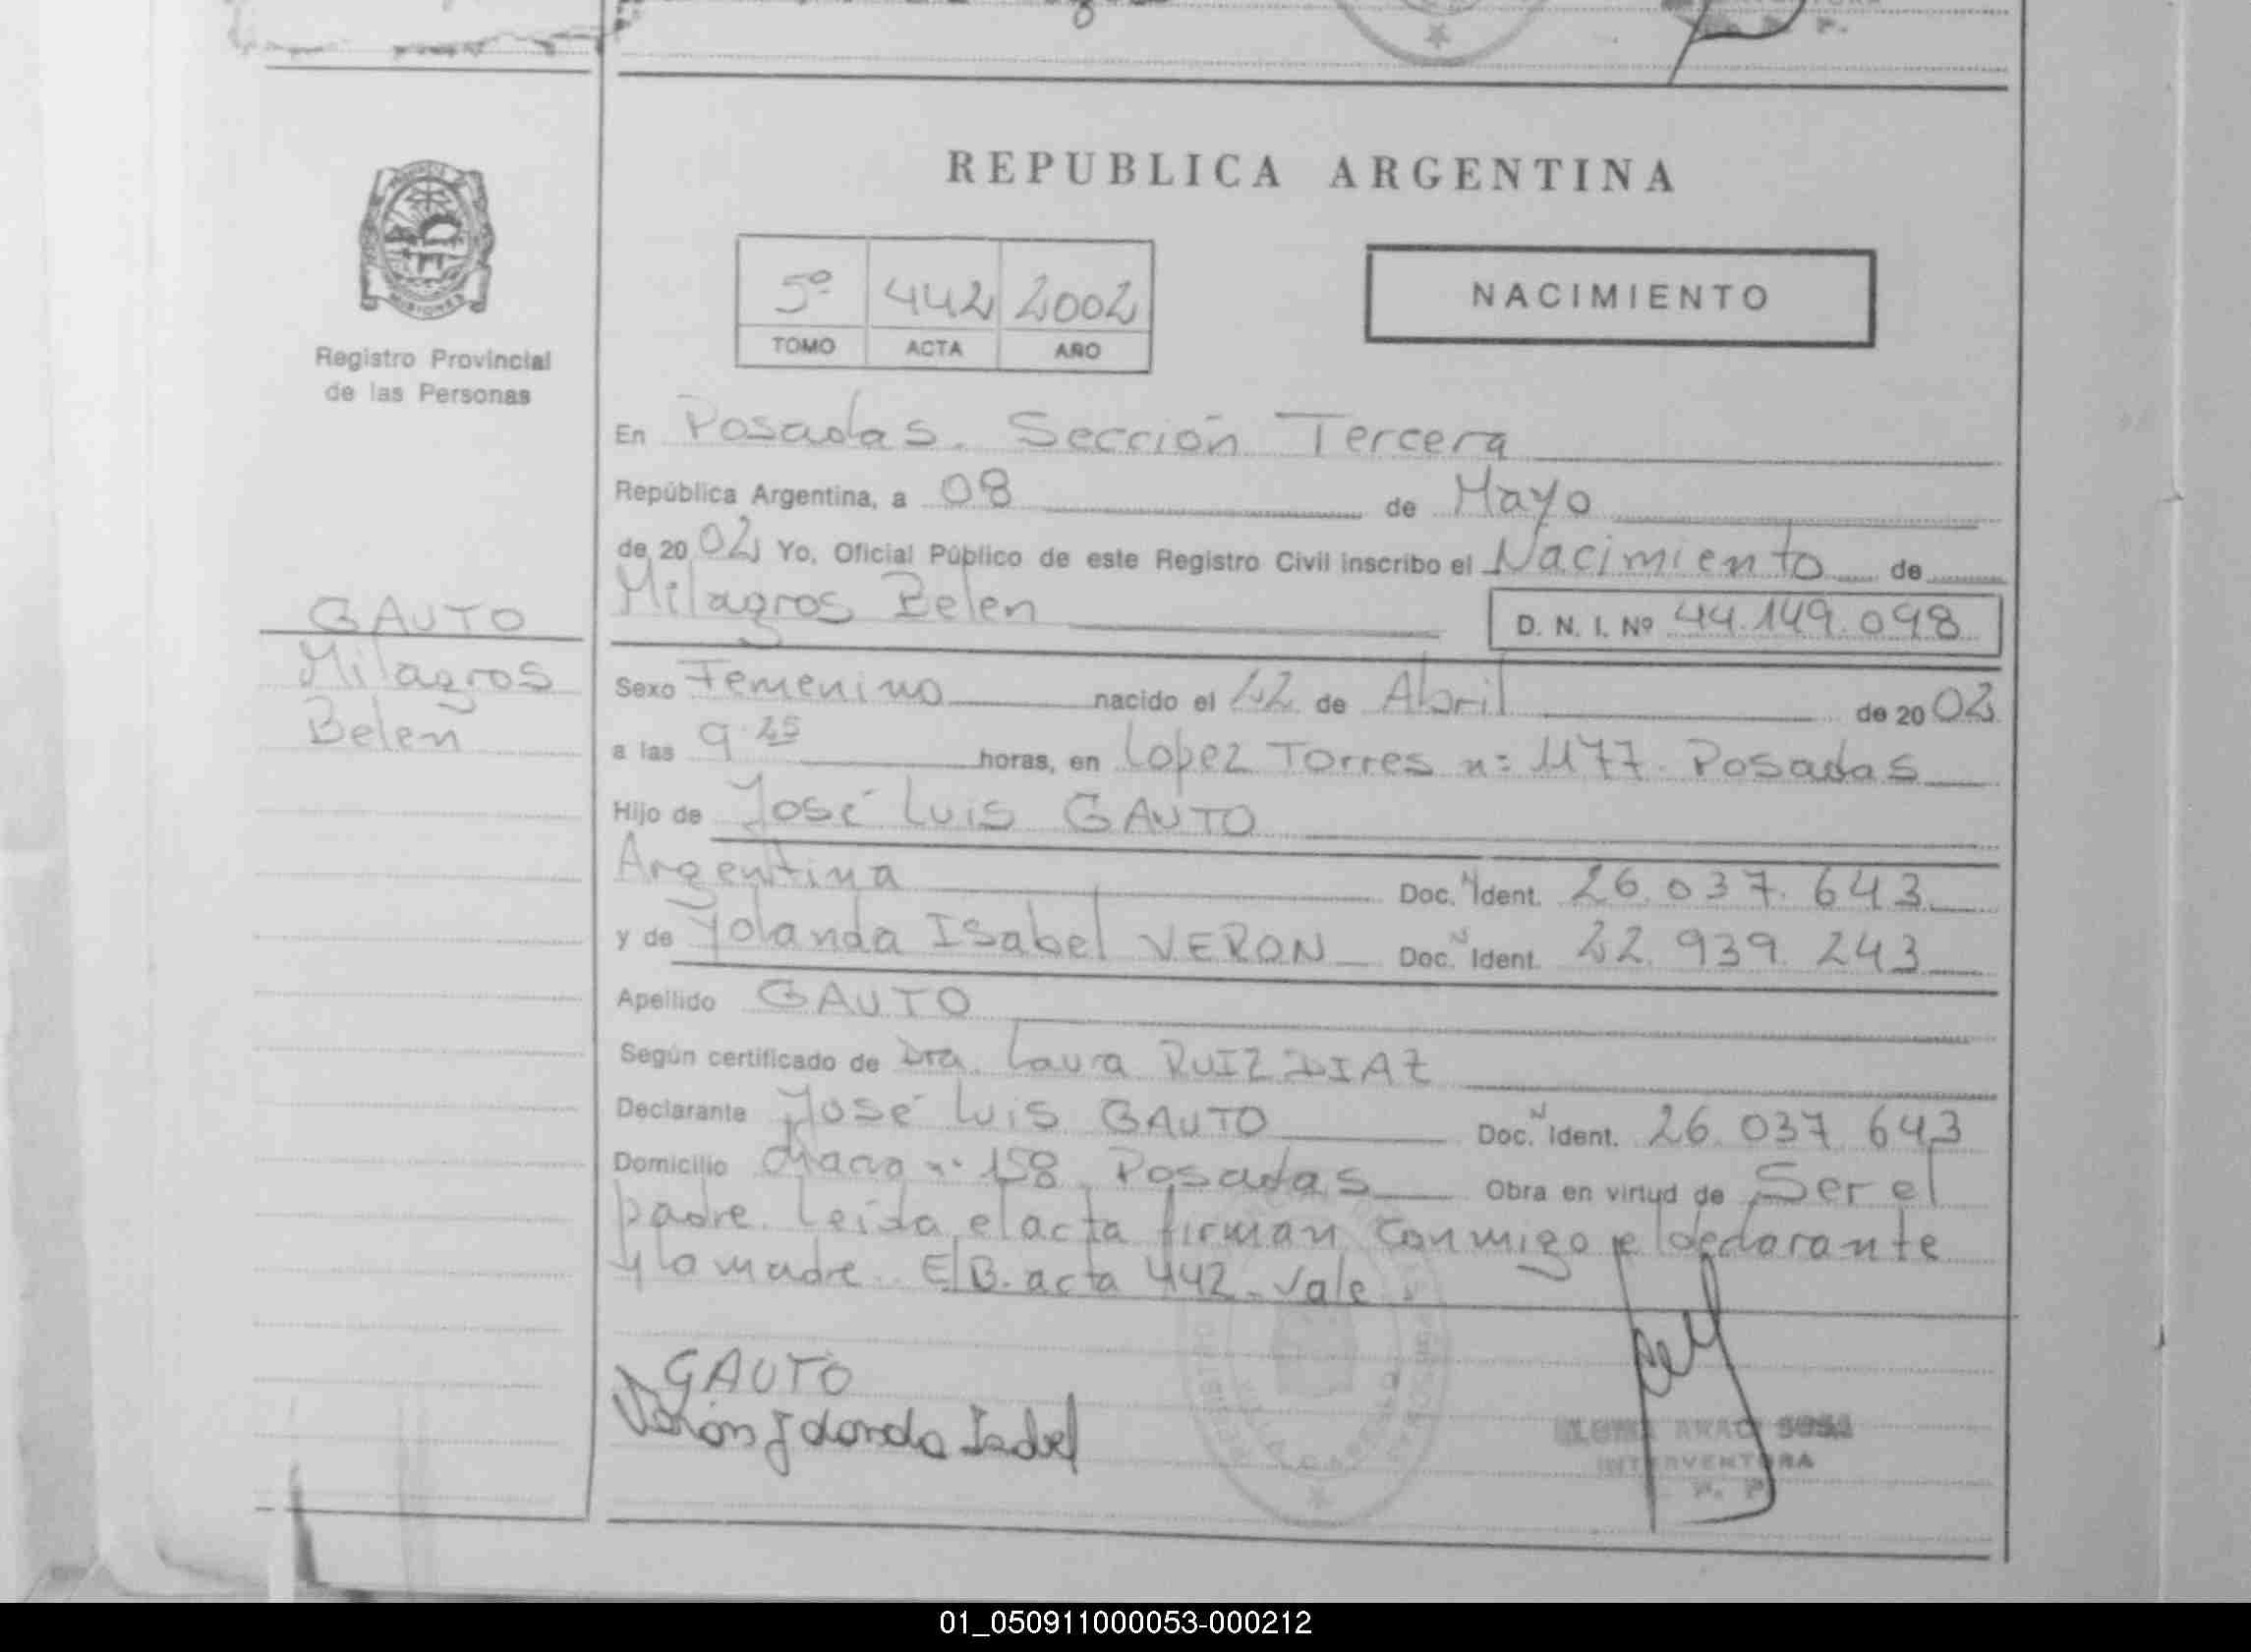 REPUBLICA ARGENTINA
5º 442 2002
TOMO ACTA AÑO
NACIMIENTO
MISIONES
Registro Provincial
de las Personas
GAUTO
Milagros
Belen
En Posadas. Sección Tercera
República Argentina, a 08 de Mayo
de 2002 Yo, Oficial Público de este Registro Civil inscribo el Nacimiento de
Milagros Belen D. N. I. Nº 44.149.098
Sexo Femenino nacido el 22 de Abril de 2002
a las 9.25 horas, en Lopez Torres n: 1177. Posadas
Hijo de José Luis GAUTO
Argentina Doc. N Ident. 26.037.643
y de Yolanda Isabel VERON Doc. N Ident. 22.939.243
Apellido GAUTO
Según certificado de Dra. Laura RUIZ DIAZ
Declarante José Luis GAUTO Doc. N Ident. 26.037.643
Domicilio n: 158 Posadas Obra en virtud de Ser el
padre. Leida el acta firman conmigo el declarante
y la madre. E/B. acta 442. Vale
GAUTO
Verón Yolanda Isabel
SOSA
INTERVENTORA
R. P. P.
01_050911000053-000212